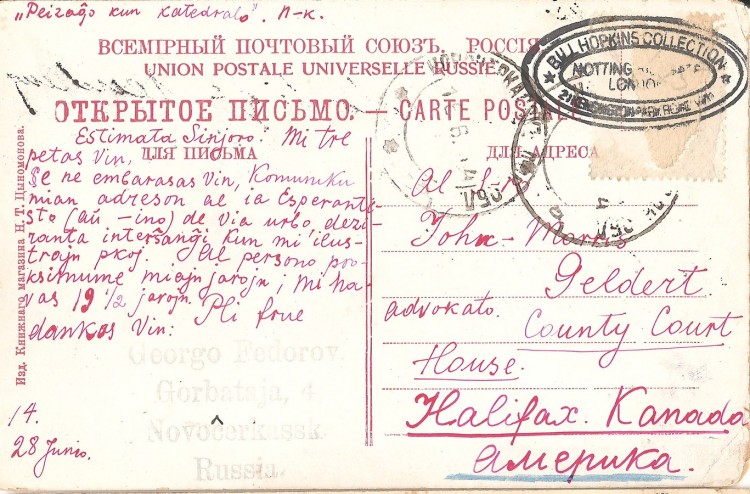 „Peizaĝo kun katedralo". N-k.
ВСЕМІРНЫЙ ПОЧТОВЫЙ СОЮЗЪ. РОССІЯ
UNION POSTALE UNIVERSELLE RUSSIE
ОТКРЫТОЕ ПИСЬМО. — CARTE POSTALE
ДЛЯ ПИСЬМА
Estimata Sinjoro. Mi tre
petas Vin,
se ne embarasas Vin, Komuniku
mian adreson al ia Esperanti-
sto (aŭ -ino) de Via urbo dezi-
ranta interŝanĝi kun mi ilus-
trajn pkoj. Al persono pro-
ksimume miajn jarojn; mi ha-
vas 19 ½ jarojn. Pli frue
dankas Vin:
Georgo Fedorov.
Gorbataja, 4
Novoĉerkassk
Russia.
14.
28 Junio.
Изд. Книжнаго магазина Н. Т. Цыномонова.
ДЛЯ АДРЕСА
Al S-ro
John-Morris
Geldert
advokato.
County Court
House.
Halifax. Kanado
Америка.
BILL HOPKINS COLLECTION
NOTTING GATE
LONDON
KENSINGTON PARK ROAD W11